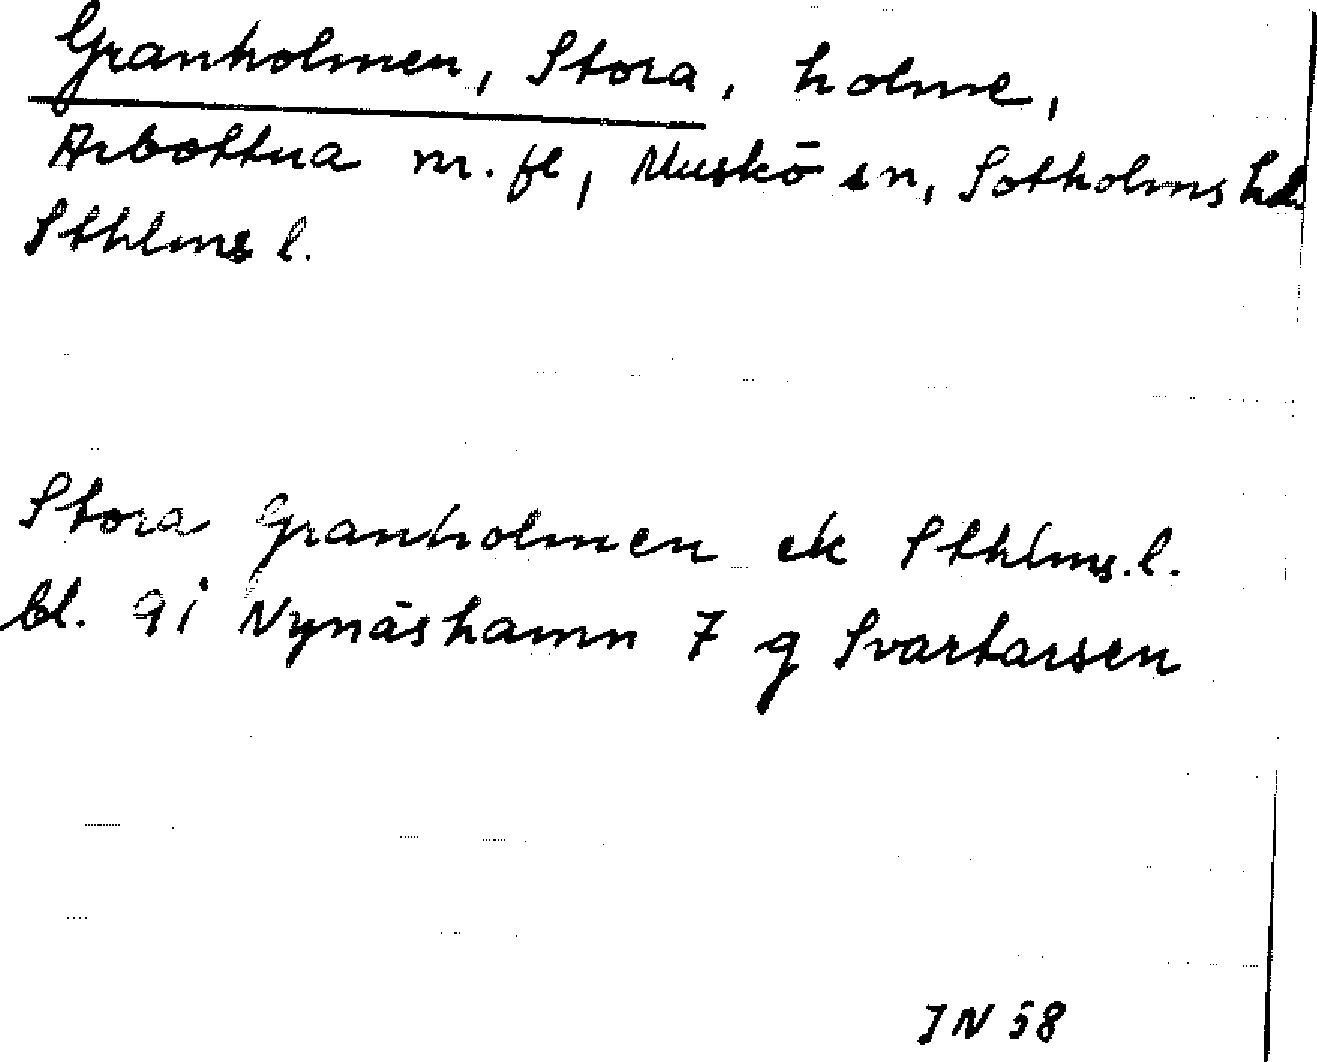 Granholmen, Stora, holme,
Arbottna m. fl, Muskö sn, Sotholms hd.
Sthlms l.
Stora Granholmen ek Sthlms. l.
bl. 9i Nynäshamn 7 g Svartarsen
IN 58